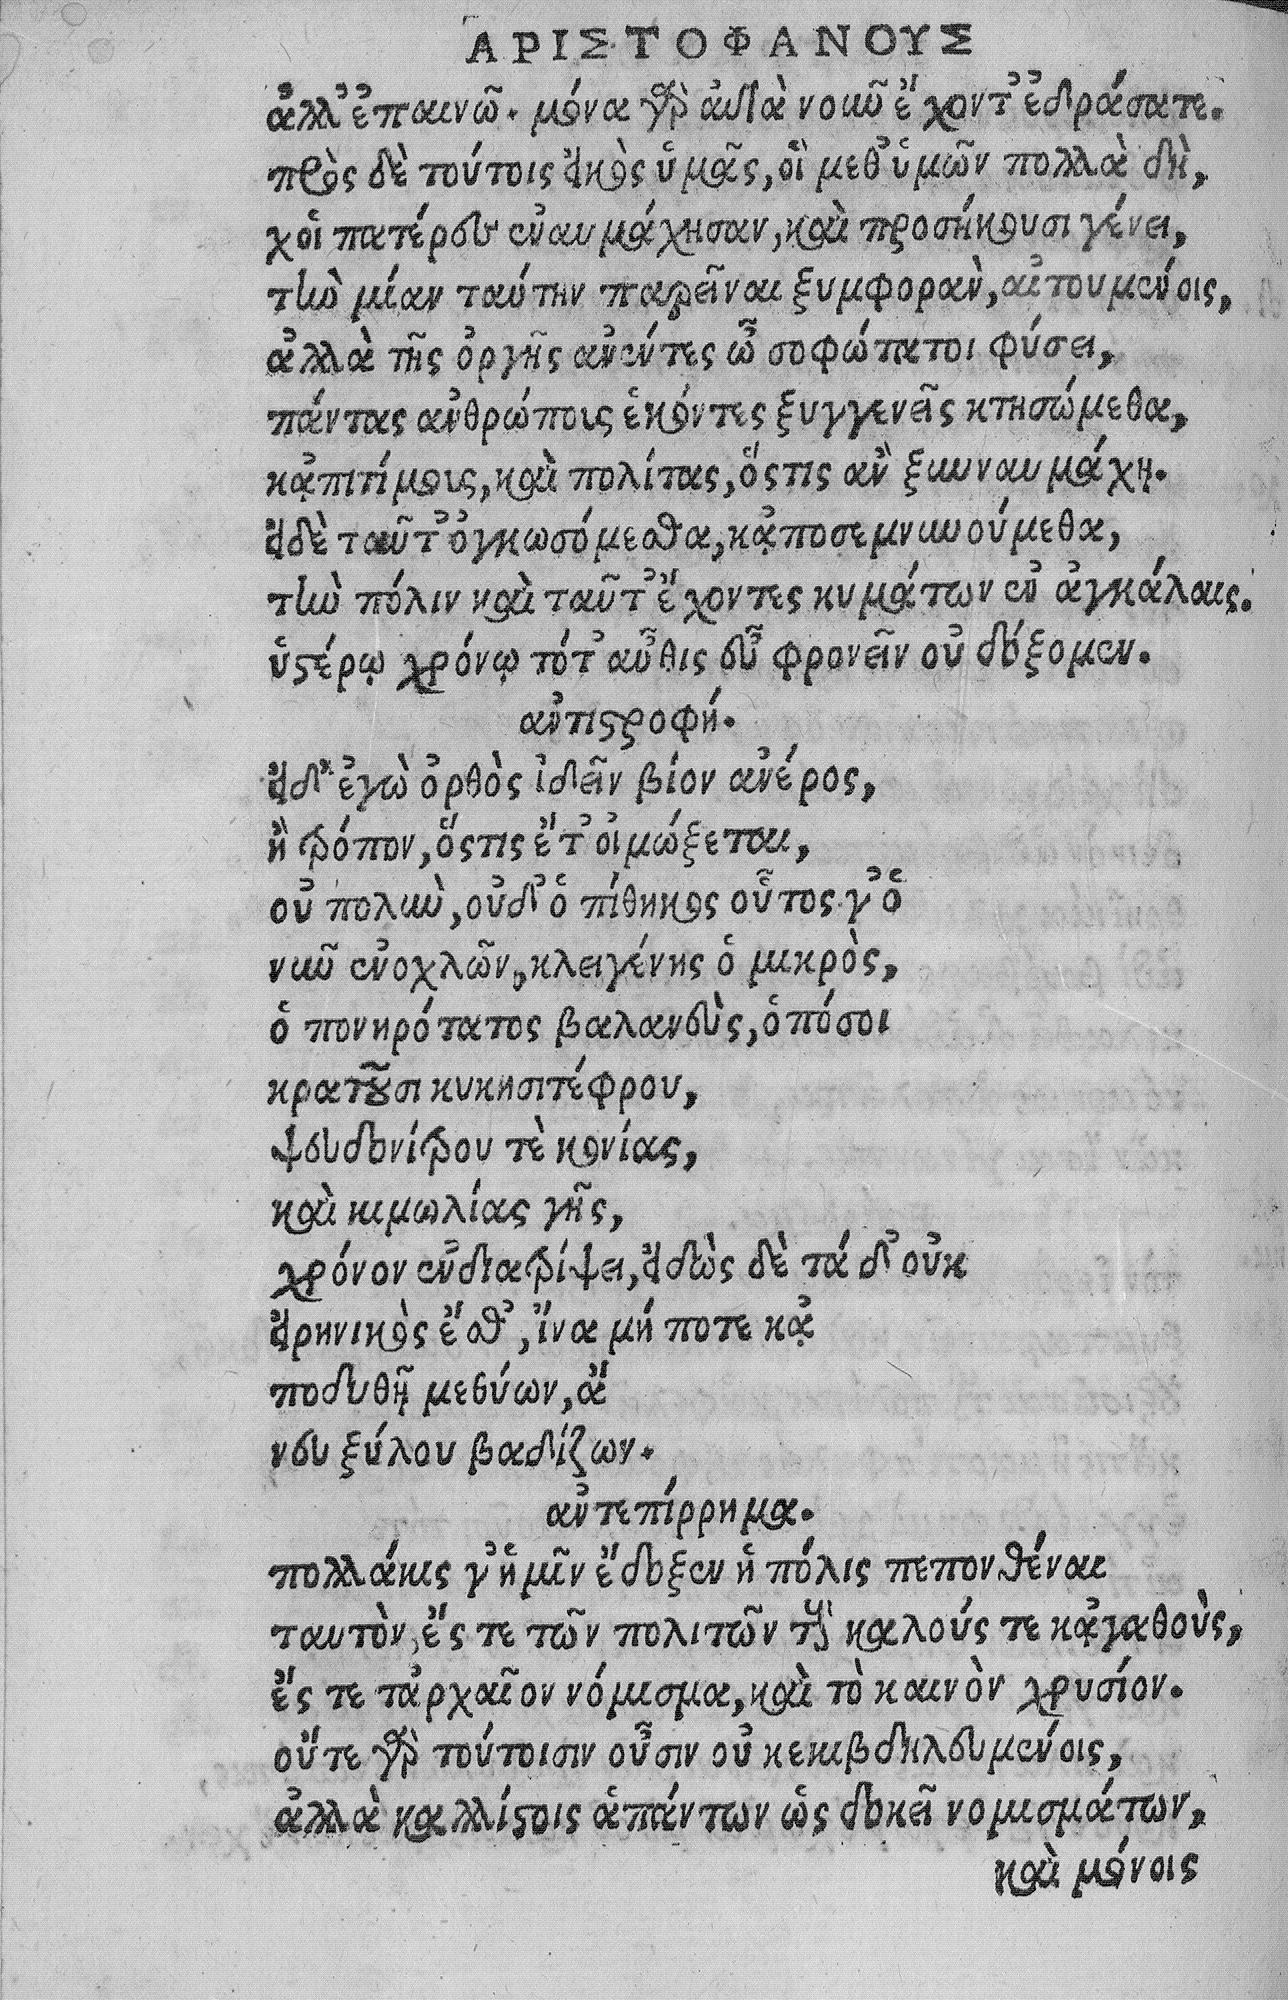 ἈΡΙΣΤΟΦΑΝΟΥΣ
ἀλλ' ἐπαινῶ. μόνα γὰρ αὐτὰ νοῦν ἔχοντ' ἐδράσατε.
πρὸς δὲ τούτοις εἰκὸς ὑμᾶς, οἳ μεθ' ὑμῶν πολλὰ δὴ,
χοἱ πατέρες ἐναυμάχησαν, καὶ προσήκουσι γένει,
τὴν μίαν ταύτην παρεῖναι ξυμφορὰν, αἰτουμένοις,
ἀλλὰ τῆς ὀργῆς ἀνέντες ὦ σοφώτατοι φύσει,
πάντας ἀνθρώπους ἑκόντες ξυγγενεῖς κτησώμεθα,
κᾀπιτίμους, καὶ πολίτας, ὅςτις ἂν ξυνναυμάχῃ.
εἰ δὲ ταῦτ' ὀγκωσόμεσθα, κᾀποσεμνυνούμεθα,
τὴν πόλιν καὶ ταῦτ' ἔχοντες κυμάτων ἐν ἀγκάλαις.
ὑστέρῳ χρόνῳ τότ' αὖθις εὖ φρονεῖν οὐ δόξομεν.
ἀντιστροφή.
εἰ δ' ἐγὼ ὀρθὸς ἰδεῖν βίον ἀνέρος,
ἢ τρόπον, ὅςτις ἔτ' οἰμώξεται,
οὐ πολὺν, οὐδ' ὁ πίθηκος οὗτος γ' ὁ
νῦν ἐνοχλῶν, κλειγένης ὁ μικρὸς,
ὁ πονηρότατος βαλανεὺς, ὁπόσοι
κρατοῦσι κυκησιτέφρου,
ψευδονίτρου τὲ κονίας,
καὶ κιμωλίας γῆς,
χρόνον ἐνδιατρίψει, εἰδὼς δὲ τά δ' οὐκ
εἰρηνικὸς ἔσθ', ἵνα μή ποτε κᾀ
ποδυθῇ μεθύων, ἄ
νευ ξύλου βαδίζων.
ἀντεπίρρημα.
πολλάκις γ' ἡμῖν ἔδοξεν ἡ πόλις πεπονθέναι
ταυτὸν, ἔς τε τῶν πολιτῶν τοὺς καλούς τε κᾀγαθοὺς,
ἔς τε τἀρχαῖον νόμισμα, καὶ τὸ καινὸν χρυσίον.
οὔτε γὰρ τούτοισιν οὖσιν οὐ κεκιβδηλευμένοις,
ἀλλὰ καλλίστοις ἁπάντων ὡς δοκεῖ νομισμάτων,
καὶ μόνοις